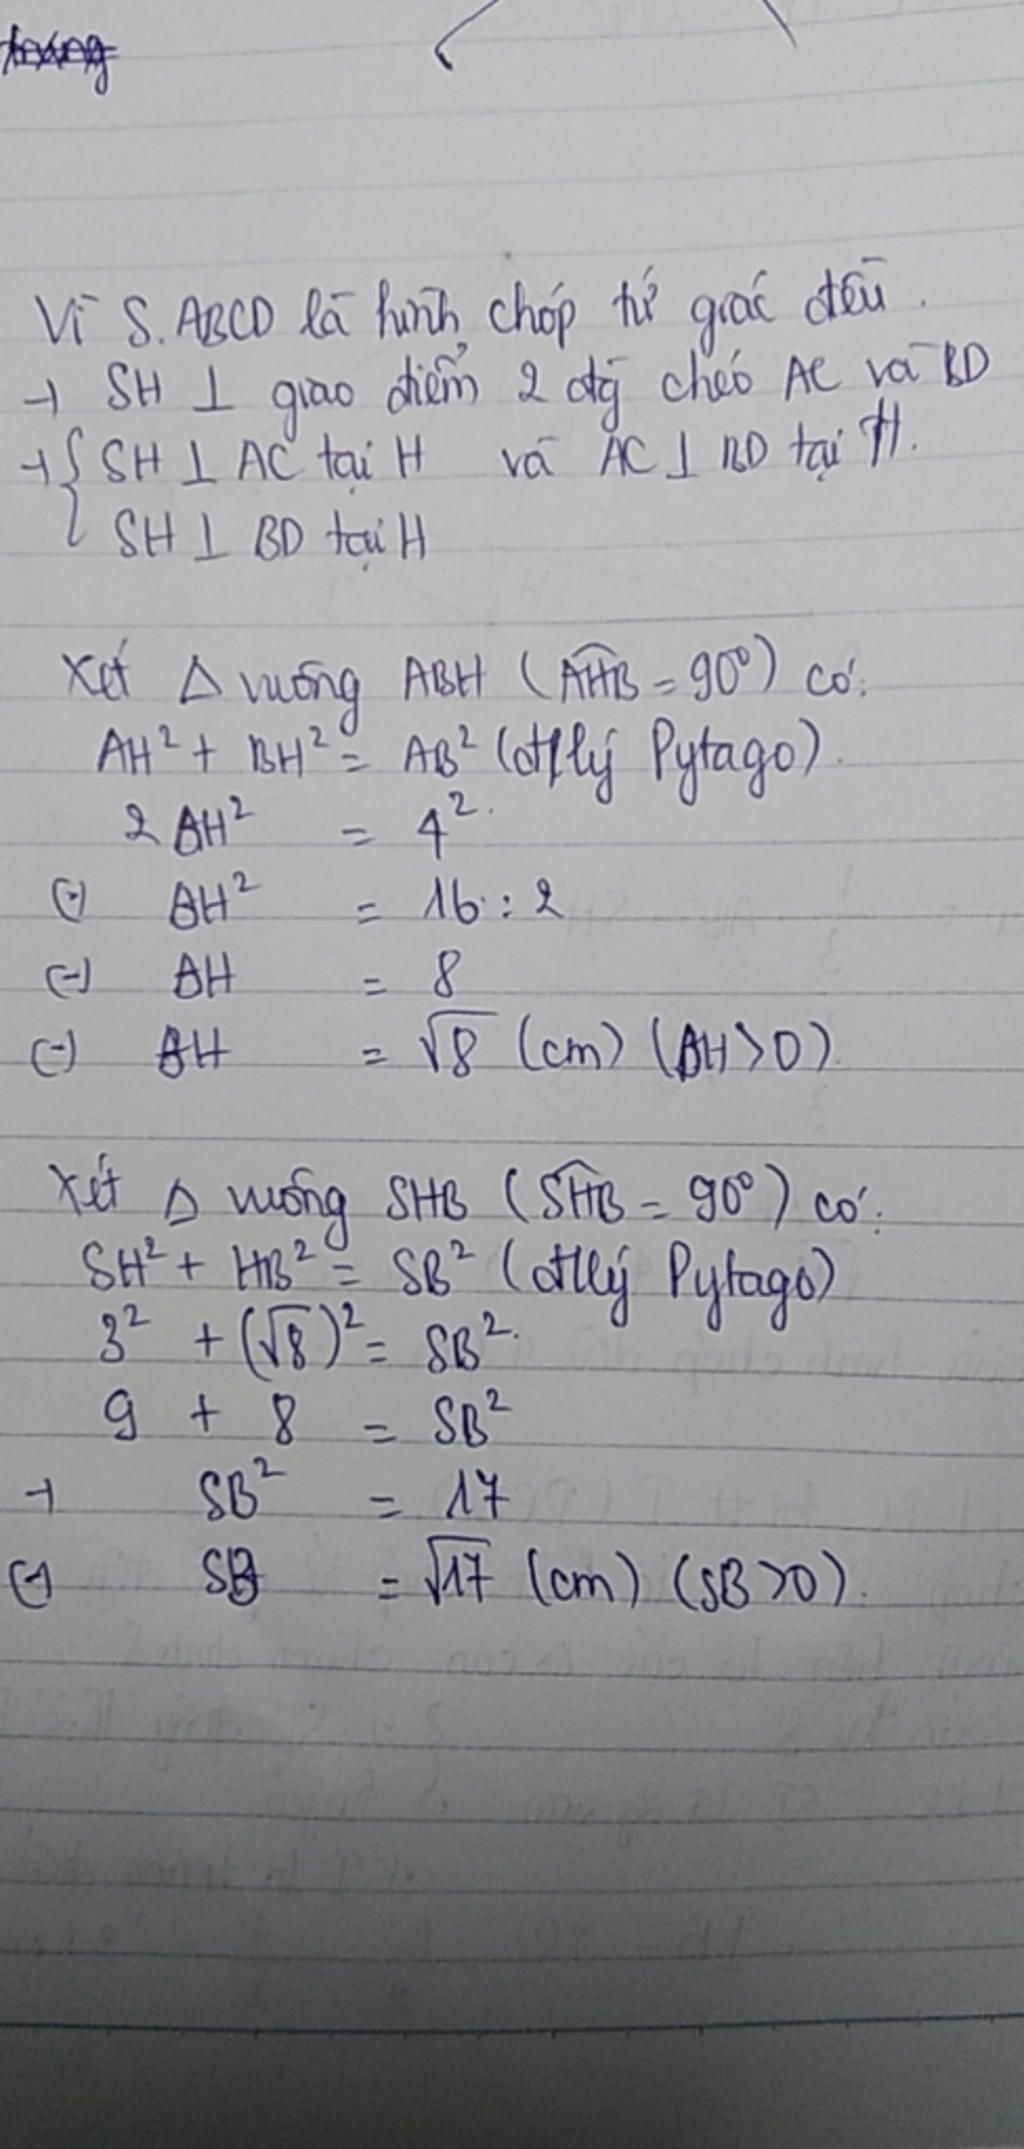 Vì S.ABCD là hình chóp tứ giác đều.
→ SH ⊥ giao điểm 2 đg chéo AC và BD
→ { SH ⊥ AC tại H và AC ⊥ BD tại H.
SH ⊥ BD tại H
Xét Δ vuông ABH (AHB = 90°) có:
AH² + BH² = AB² (đlý Pytago).
2 AH² = 4²
(-) AH² = 16 : 2
(-) AH = 8
(-) AH = √8 (cm) (AH > 0).
Xét Δ vuông SHB (SHB = 90°) có:
SH² + HB² = SB² (đlý Pytago)
3² + (√8)² = SB²
9 + 8 = SB²
→ SB² = 17
(-) SB = √17 (cm) (SB > 0).